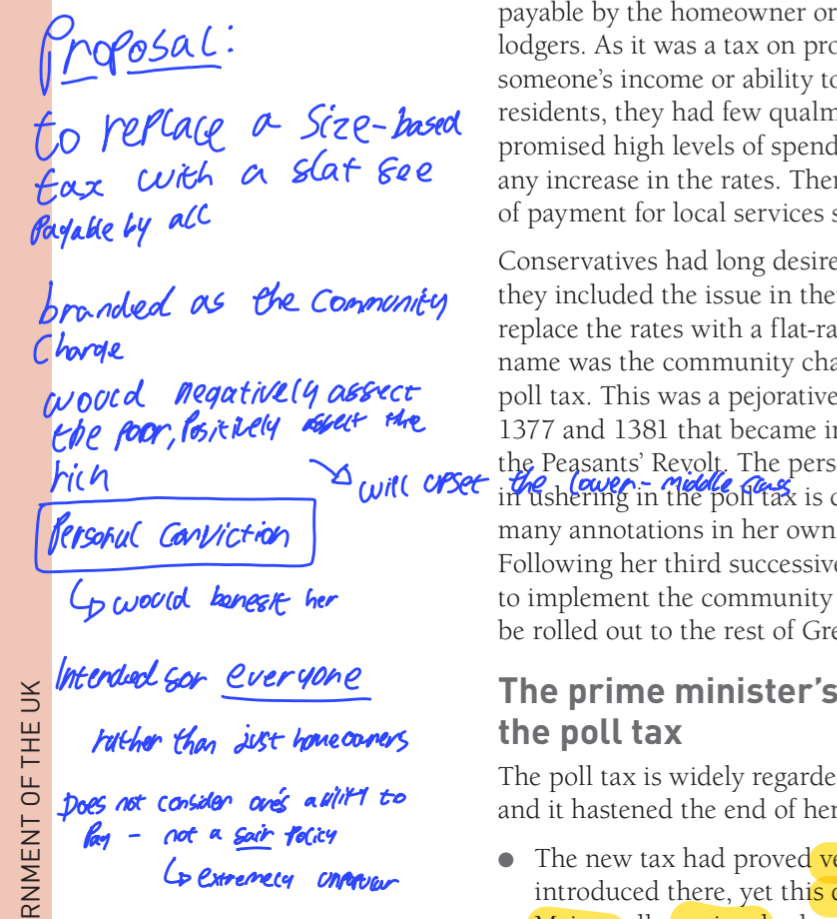 Proposal:
to replace a size-based
tax with a flat fee
Payable by all
branded as the Community
Charge
would negatively affect
the poor, Positively affect the
rich
will upset the lower-middle class
Personal Conviction
would benefit her
Intended for everyone
rather than just homeowners
Does not consider one's ability to
Pay - not a fair Policy
extremely unpopular
RNMENT OF THE UK
payable by the homeowner or
lodgers. As it was a tax on pro
someone's income or ability to
residents, they had few qualm
promised high levels of spend
any increase in the rates. Ther
of payment for local services s
Conservatives had long desire
they included the issue in the
replace the rates with a flat-ra
name was the community cha
poll tax. This was a pejorative
1377 and 1381 that became in
the Peasants' Revolt. The pers
in ushering in the poll tax is c
many annotations in her own
Following her third successive
to implement the community
be rolled out to the rest of Gre
The prime minister's
the poll tax
The poll tax is widely regarde
and it hastened the end of her
• The new tax had proved ve
introduced there, yet this d